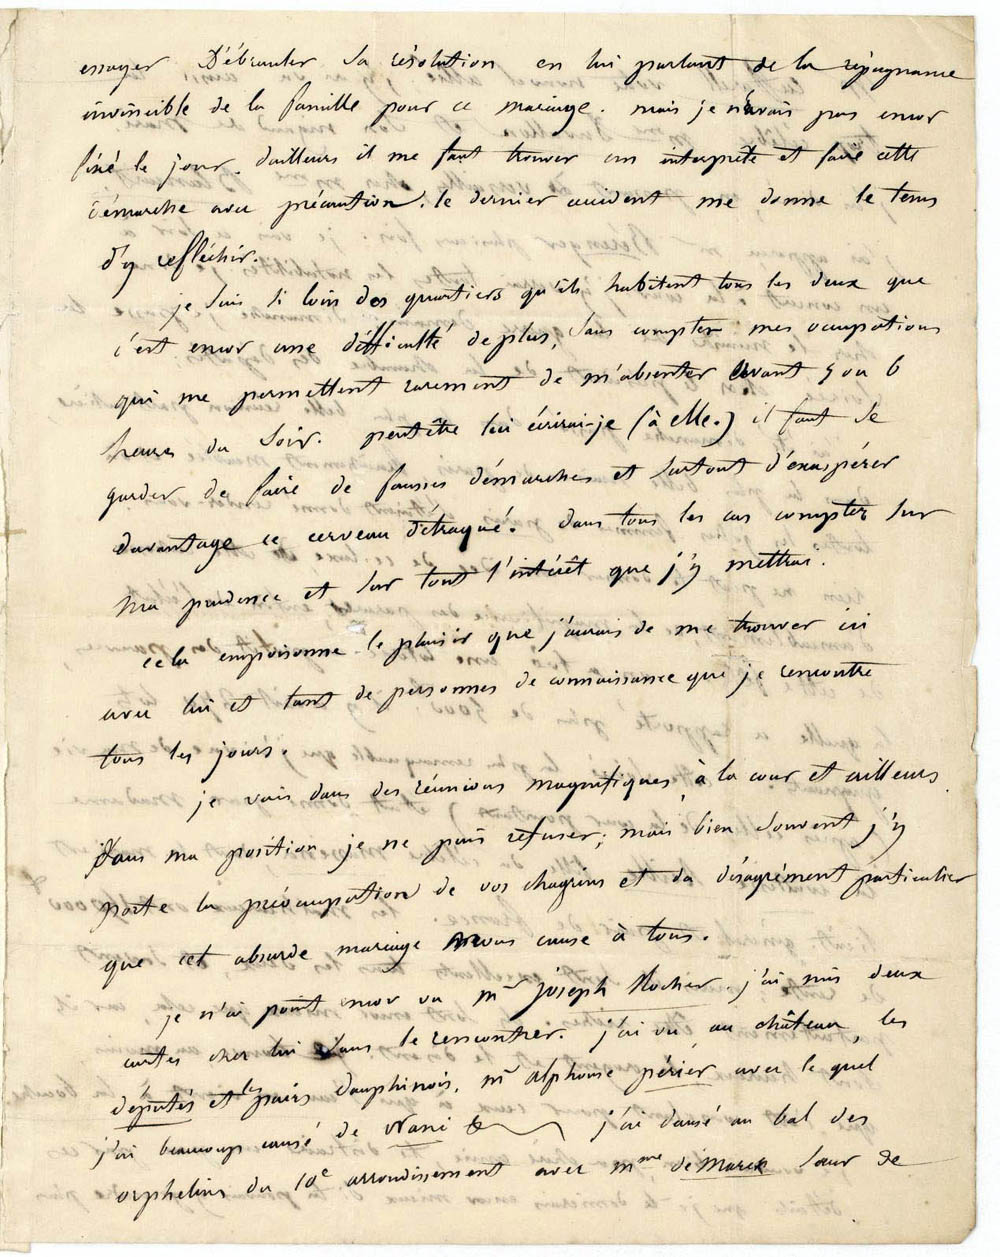 essayer d'ébranler sa résolution en lui parlant de la répugnance
invincible de la famille pour ce mariage. mais je n'avais pas encor
fixé le jour. dailleurs il me faut trouver un interprête et faire cette
démarche avec précaution. le dernier accident me donne le tems
d'y refléchir.
je suis si loin des quartiers qu'ils habitent tous les deux que
c'est encor une difficulté de plus, sans compter mes occupations
qui me permettent rarement de m'absenter avant 5 ou 6
heures du soir. peutêtre lui écrirai-je (à elle.) il faut se
garder de faire de fausses démarches et surtout d'exaspérer
davantage ce cerveau détraqué. dans tous les cas comptez sur
ma prudence et sur tout l'intérêt que j'y mettrai.
cela empoisonne le plaisir que j'aurais de me trouver ici
avec lui et tant de personnes de connaissance que je rencontre
tous les jours.
je vais dans des réunions magnifiques, à la cour et ailleurs
dans ma position je ne puis refuser; mais bien souvent j'y
porte la préoccupation de vos chagrins et du désagrément particulier
que cet absurde mariage nous cause à tous.
je n'ai point encor vu mr joseph Rocher. j'ai mis deux
cartes chez lui sans le rencontrer. j'ai vu, au château, les
députés et les pairs dauphinois, mr alphonse périer avec le quel
j'ai beaucoup causé de Nani &
j'ai dansé au bal des
orphelins du 10e arrondissement avec mme de marck sœur de